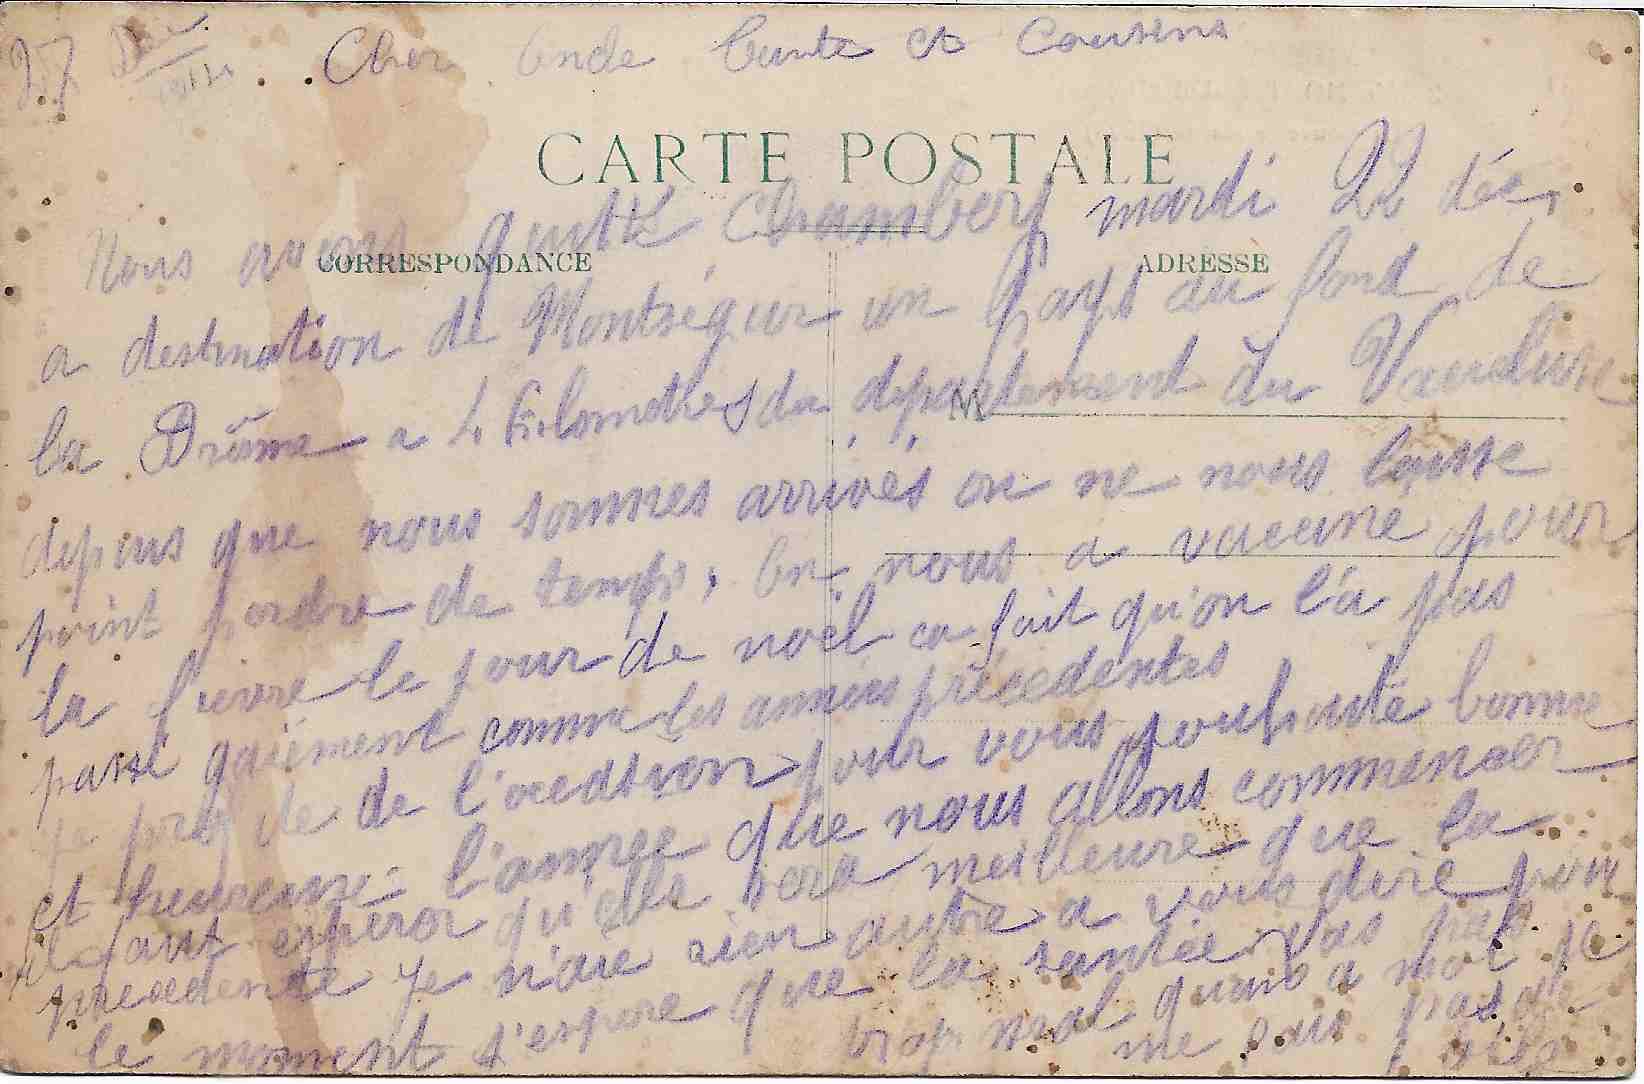 27 Déc. 1914
Cher Oncle Tante et Cousins
CARTE POSTALE
CORRESPONDANCE
ADRESSE
Nous avons quitté Chambery mardi 22 déc.
a destination de Montségur un pays au fond de
la Drôme a 4 kilomètres du département du Vaucluse
depius que nous sommes arrivés on ne nous laisse
point perdre de temps, On nous a vacciné pour
la fievre le jour de noël ca fait qu'on l'a pas
passé gaiement comme les années précedentes
je profite de l'occasion pour vous souhaité bonne
et heureuse l'année que nous allons commencer
il faut espérer qu'elle sera meilleure que la
precedente je n'aie rien autre a vous dire pour
le moment j'espere que la santée vas pas
trop mal quand a moi je
me fais pas de
bile